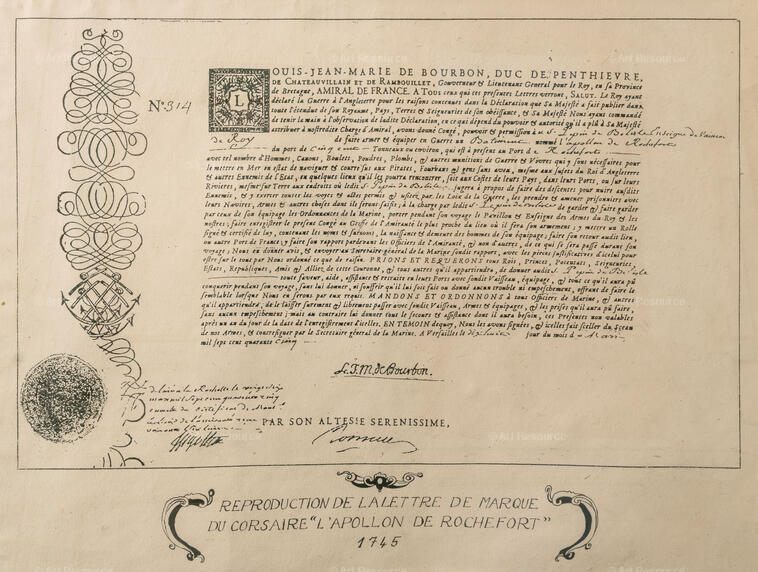 N° 314
LOUIS-JEAN-MARIE DE BOURBON, DUC DE PENTHIEVRE,
DE CHATEAUVILLAIN ET DE RAMBOUILLET, Gouverneur & Lieutenant General pour le Roy, en sa Province
de Bretagne, AMIRAL DE FRANCE. A Tous ceux qui ces presentes Lettres verront, SALUT. Le Roy ayant
déclaré la Guerre à l'Angleterre pour les raisons contenues dans la Déclaration que Sa Majesté a fait publier dans
toute l'étendue de son Royaume, Pays, Terres & Seigneuries de son obéissance, & Sa Majesté Nous ayant commandé
de tenir la main à l'observation de ladite Déclaration, en ce qui dépend du pouvoir & autorité qu'il a plû à Sa Majesté
attribuer à nostredite Charge d'Amiral, avons donné Congé, pouvoir & permission à
de Roy de faire armer & équiper en Guerre un nommé l'apollon de Rochefort
du port de Cinq cent Tonneaux ou environ, qui est à present au Port de Rochefort
avec tel nombre d'Hommes, Canons, Boulets, Poudres, Plombs, & autres munitions de Guerre & Vivres qui y sont nécessaires pour
le mettre en Mer en estat de naviguer & courre sus aux Pirates, Fourbans & gens sans aveu, mesme aux Sujets du Roi d'Angleterre
& autres Ennemis de l'Estat, en quelques lieux qu'il les pourra rencontrer, soit aux Costes de leurs Pays, dans leurs Ports, ou sur leurs
Rivieres, mesme sur Terre aux endroits où ledit Sr jugera à propos de faire des descentes pour nuire ausdits
Ennemis, & y exercer toutes les voyes & actes permis & usitez par les Loix de la Guerre, les prendre & amener prisonniers avec
leurs Navires, Armes & autres choses dont ils seront saisis, à la charge par ledit Sr de garder & faire garder
par ceux de son équipage les Ordonnances de la Marine, porter pendant son voyage le Pavillon & Enseigne des Armes du Roy & les
nostres; faire enregistrer le present Congé au Greffe de l'Amirauté le plus proche du lieu où il fera son armement; y mettre un Rolle
signé & certifié de luy, contenant les noms & surnoms, la naissance & demeure des hommes de son équipage; faire son retour audit lieu,
ou autre Port de France; y faire son rapport pardevant les Officiers de l'Amirauté, & non d'autres, de ce qui se sera passé durant son
voyage; Nous en donner avis, & envoyer au Secretaire général de la Marine sondit rapport, avec les pieces justificatives d'icelui pour
estre sur le tout par Nous ordonné ce que de raison. PRIONS ET REQUERONS tous Rois, Princes, Potentats, Seigneuries,
Estats, Republiques, Amis & Alliez de cette Couronne, & tous autres qu'il appartiendra, de donner audit Sr
toute faveur, aide, assistance & retraite en leurs Ports avec sondit Vaisseau, équipage, & tout ce qu'il aura pû
conquerir pendant son voyage, sans lui donner, ni souffrir qu'il lui soit fait ou donné aucun trouble ni empeschement, offrant de faire le
semblable lorsque Nous en serons par eux requis. MANDONS ET ORDONNONS à tous Officiers de Marine, & autres
qu'il appartiendra, de le laisser surement & librement passer avec sondit Vaisseau, Armes & équipages, & les prises qu'il aura pû faire,
sans aucun empeschement; mais au contraire lui donner tout le secours & assistance dont il aura besoin, ces Presentes non valables
après un an du jour de la date de l'enregistrement d'icelles. EN TEMOIN dequoy, Nous les avons signées, & icelles fait sceller du Sceau
de nos Armes, & contresigner par le Secretaire général de la Marine. A Versailles le jour du mois de Mars
mil sept cens quarante Cinq
L.J.M. de Bourbon.
PAR SON ALTESSE SERENISSIME,
REPRODUCTION DE LA LETTRE DE MARQUE
DU CORSAIRE "L'APOLLON DE ROCHEFORT"
1745